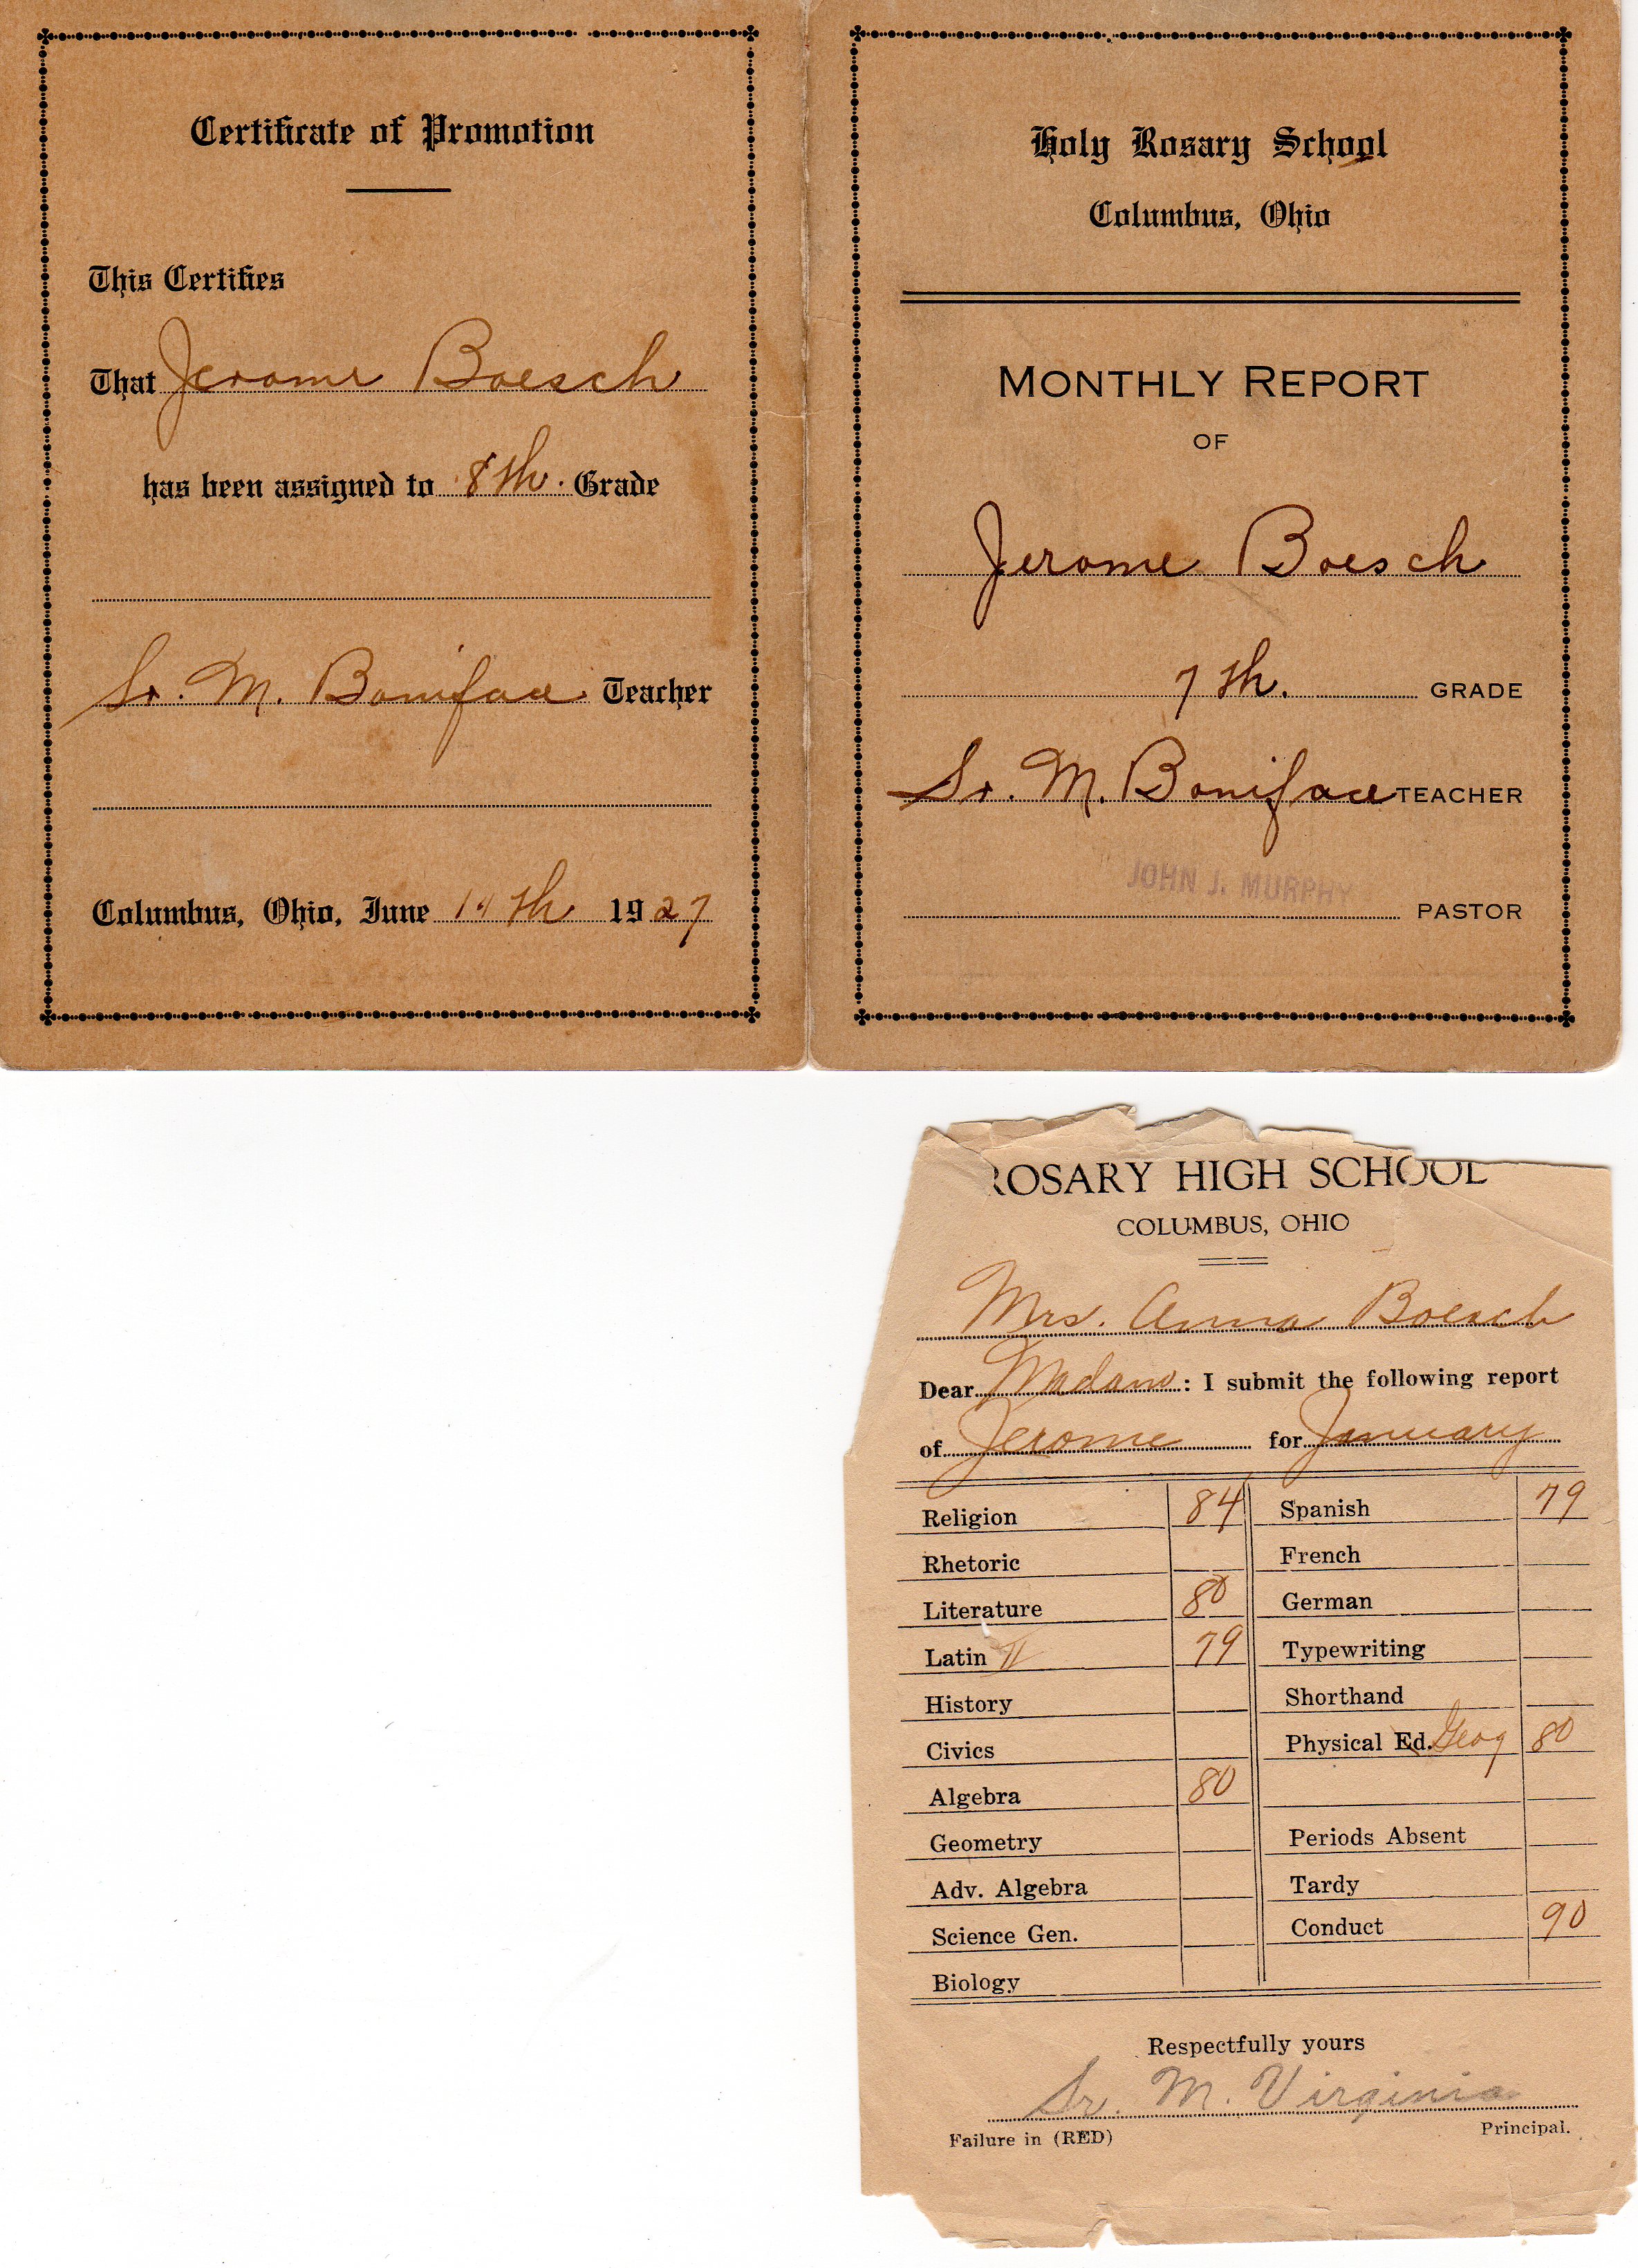 Certificate of Promotion
This Certifies
That Jerome Boesch
has been assigned to 8th. Grade
Sr. M. Boniface Teacher
Columbus, Ohio, June 14th 1927
Holy Rosary School
Columbus, Ohio
MONTHLY REPORT
OF
Jerome Boesch
7th. GRADE
Sr. M. Boniface TEACHER
JOHN J. MURPHY
PASTOR
ROSARY HIGH SCHOOL
COLUMBUS, OHIO
Mrs. Anna Boesch
Dear Madam: I submit the following report
of Jerome for January
Religion 84 Spanish 79
Rhetoric French
Literature 80 German
Latin II 79 Typewriting
History Shorthand
Civics Physical Ed. Geog 80
Algebra 80
Geometry Periods Absent
Adv. Algebra Tardy
Science Gen. Conduct 90
Biology
Respectfully yours
Sr. M. Virginia
Failure in (RED) Principal.